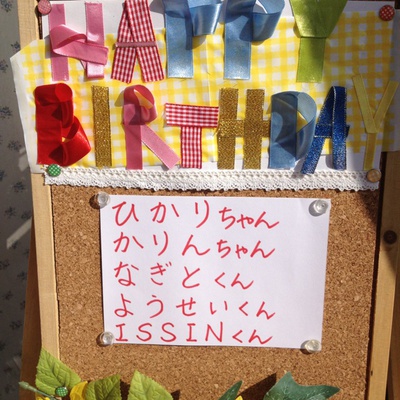 HAPPY
BIRTHDAY
ひかりちゃん
かりんちゃん
なぎとくん
ようせいくん
ISSINくん